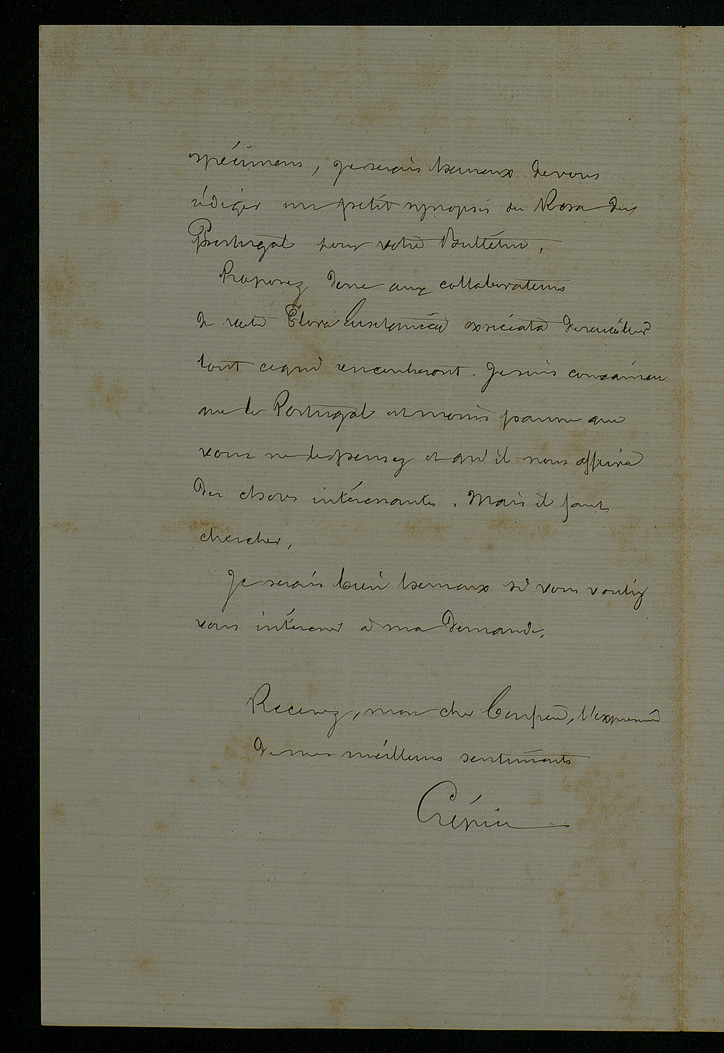 spécimens, je serais heureux de vous
rédiger un petit synopsis des Rosa du
Portugal pour votre Bulletin.
Proposez donc aux collaborateurs
de votre Flora Lusitanica exsiccata de récolter
tout ce qu'il rencontreront. Je suis convaincu
que le Portugal est moins pauvre que
vous ne le pensez et qu'il nous offrira
des choses intéressantes. Mais il faut
chercher.
Je serais bien heureux si vous vouliez
vous intéresser à ma demande.
Recevez, mon cher Confrère, l'expression
de mes meilleurs sentiments
Crépin